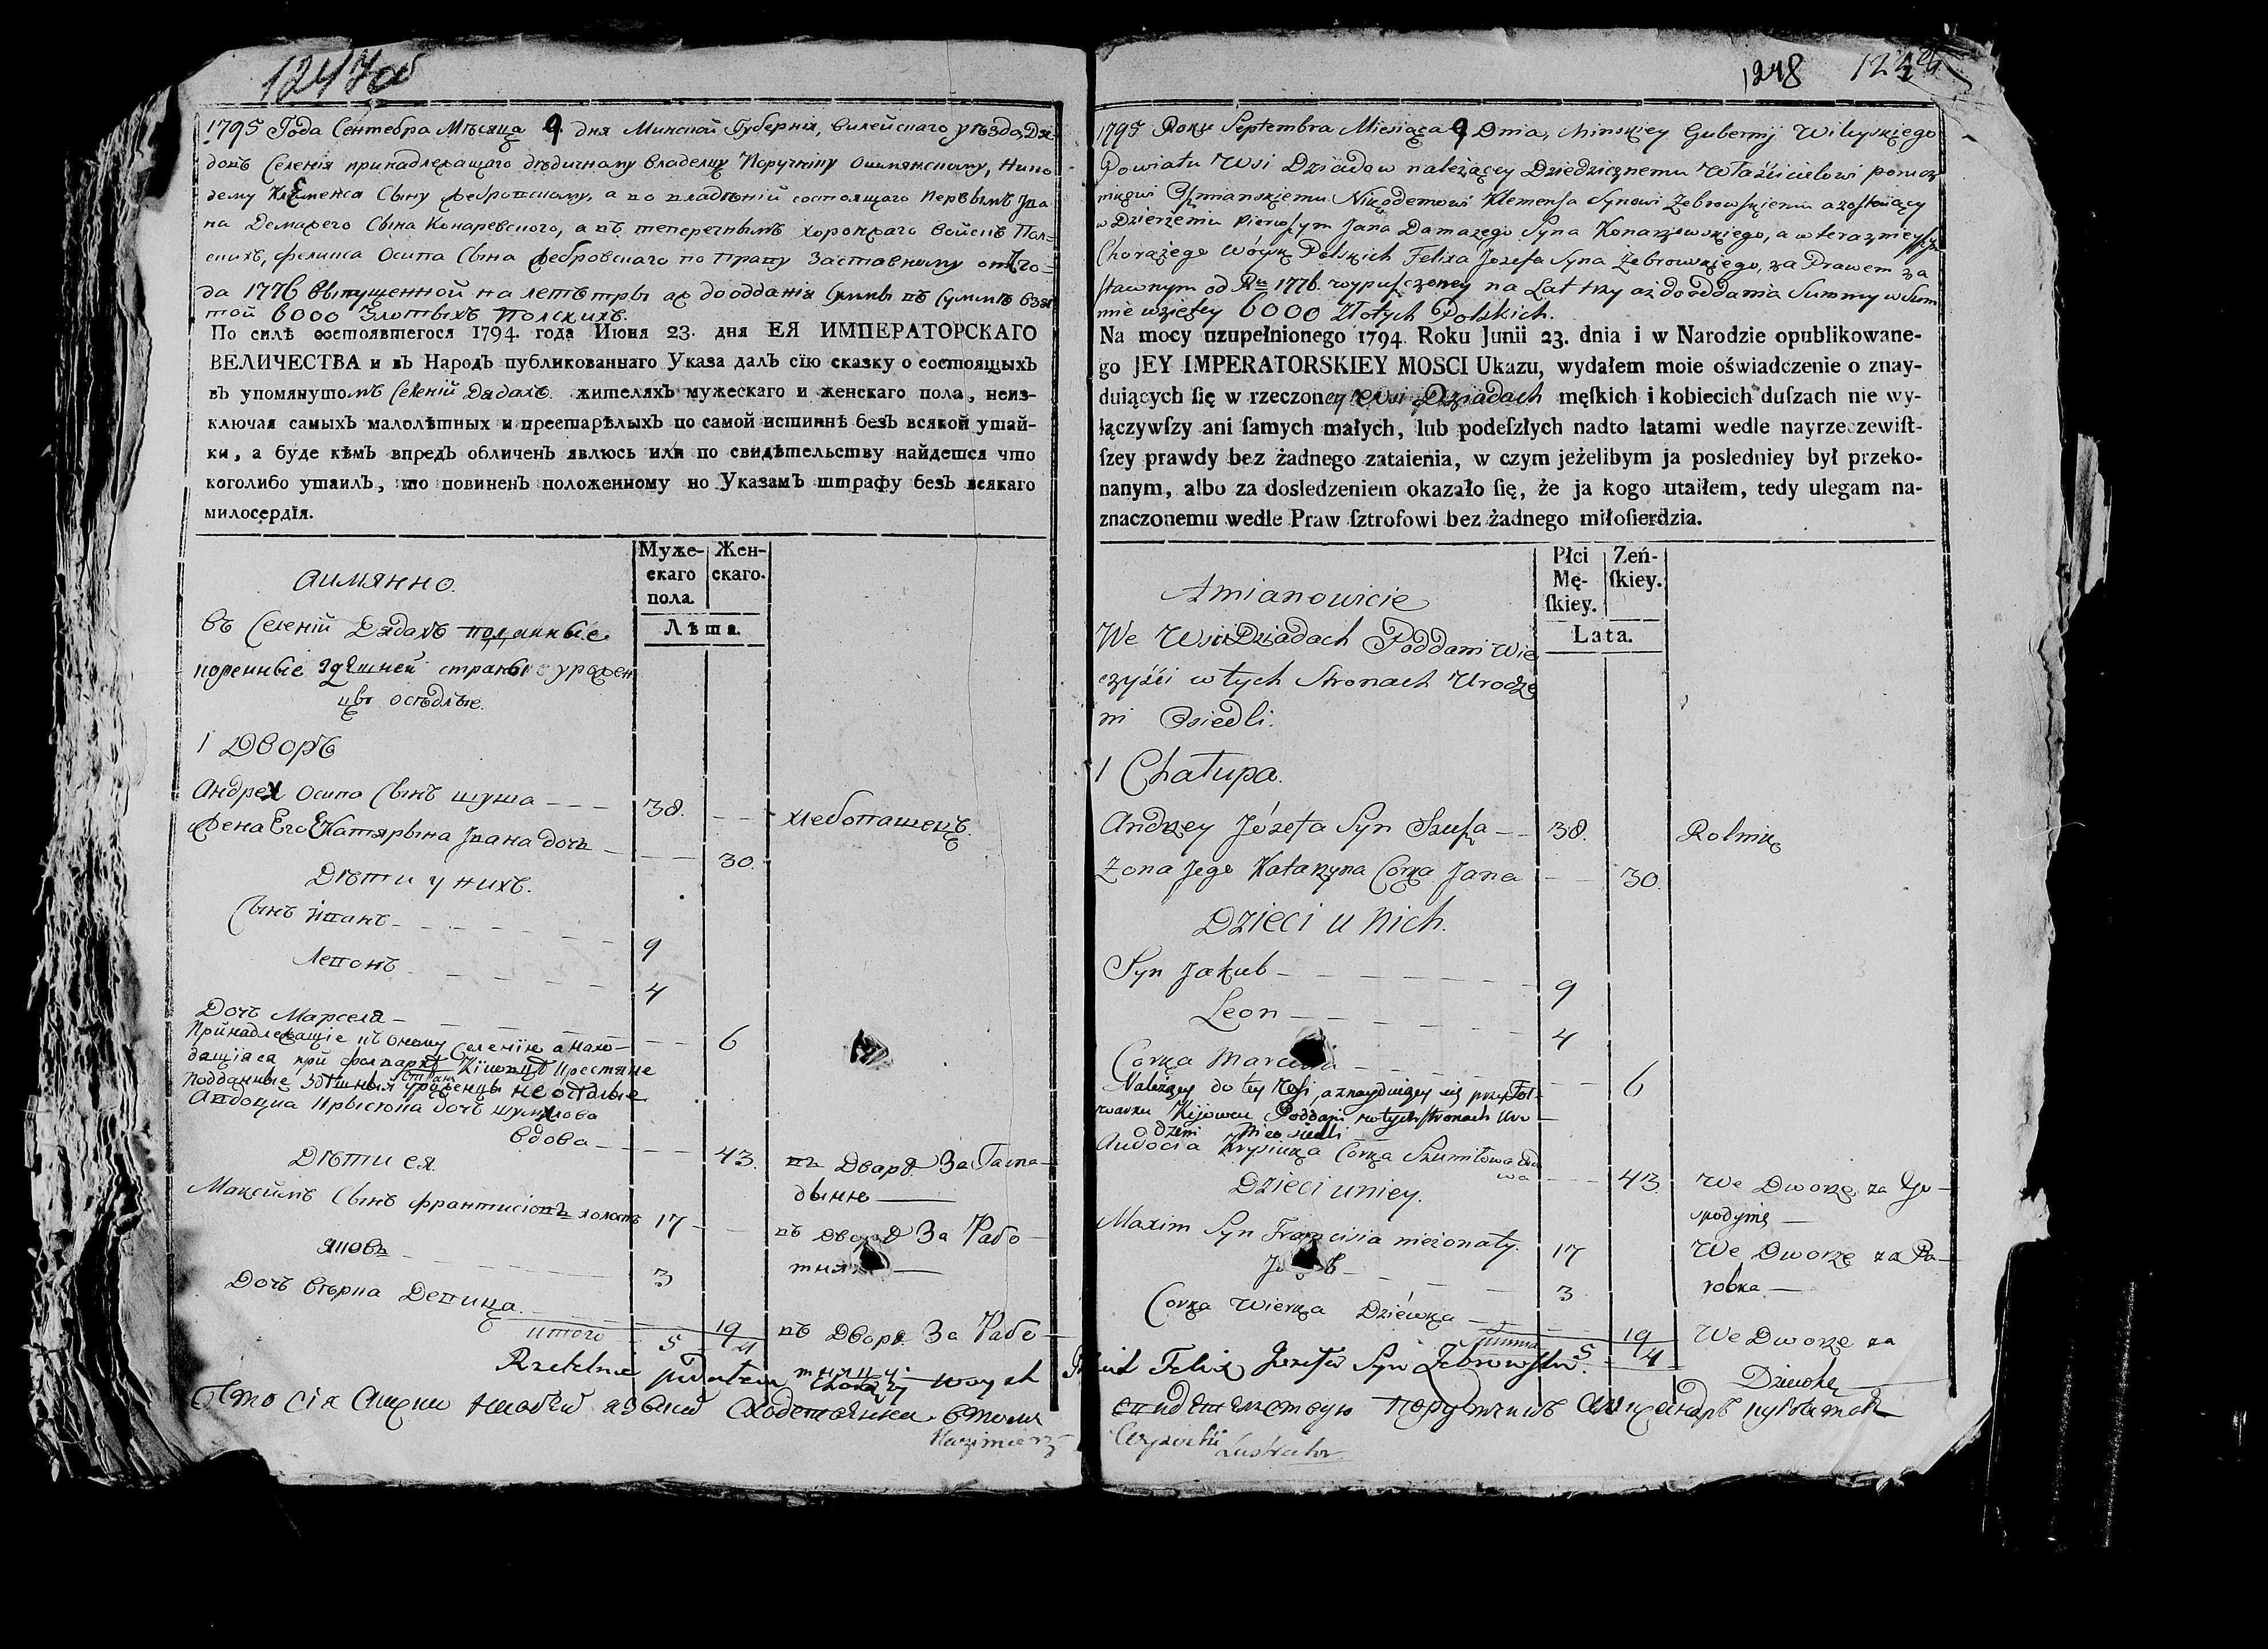 1247об
1795 Года Сентебра Мѣсяца 9 дня Минской Губерніи, Вилейскаго уѣзда, Дя-
довъ Селенія принадлежащаго дѣдичному Владелцу Поручнику Ошмянскому, Нико
дему Клеменса Сыну Жебровскому, а во владѣній состоящаго Первымъ Іва
на Демазего Сына Конаревского, а въ теперечнымъ Хоронжаго Войскъ Пол-
скихъ, Фелиса Осипа Сына Жебровскаго по Праву Заставному отъ го-
да 1776 выпущенной на летъ тры аж до отдання Суммы въ Суммѣ взя
той 6000 Злотыхъ Полскихъ.
По силѣ состоявшегося 1794. года Июня 23. дня ЕЯ ИМПЕРАТОРСКАГО
ВЕЛИЧЕСТВА и въ Народъ публикованнаго Указа далъ сїю сказку о состоящыхъ
въ упомянутомъ Селеній Дядахъ. жителяхъ мужескаго и женскаго пола, неиз-
ключая самыхъ малолѣтныхъ и престарѣлыхъ по самой истиннѣ безъ всякой утай-
ки, а буде кѣмъ впредъ обличенъ явлюсь или по свидѣтельству найдется что
коголибо утаилъ, то повиненъ положенному но Указамъ штрафу безъ всякаго
милосердїя.
Муже-
скаго
пола.
Жен-
скаго.
Лѣта.
Аимянно.
въ Селеній Дядахъ подданные
коренные здешней страны урожен
цы осѣдлые.
1 Дворъ
Андрей Осипа Сынъ Шуша - - - 38. - - хлебопашецъ.
Жена Его Екатярына Івана дочь - - - 30.
Дѣти у нихъ.
Сынъ - - - 9
Левонъ - - - 4
Дочъ Марсела - - - 6
Принадлежащіе къ оному Селенїю а нахо-
дящіяся при фолварку Кїювцѣ крестяне
подданные здѣшныя страны уроженцы неосѣдлые
Авдоциа Крысюка дочъ Шумилова
вдова - - - 43. въ Дварѣ За Гаспа-
дыню
Дѣти ея.
Максимъ Сынъ Францисковъ холостъ 17 - въ Дварѣ За Рабо-
Яковъ - - - 3
Дочъ Вѣрка Девица. - - - 19 въ Дварѣ За Рабо-
итого 5 4
1248
1795 Roku Septembra Miesiąca 9 Dnia, Minskiey Gubernij Wileyskiego
Powiatu Wsi Dziadow należącey Dziedzicznemu Właścicielowi porucz
nikowi Oszmianskiemu Nikodemowi Klemensa Synowi Żebrowskiemu a zostaiącey
w Dzierżeniu Pierwszym Jana Damazego Syna Konarzewskiego, a w teraznieyszym
Chorążego Wóysk Polskich Felixa Jozefa Syna Żebrowskiego, za Prawem za
stawnym od Ru 1776. wypuszczoney na Lat trzy aż do oddania Summy w Sum
mie wziętey 6000 Złotych Polskich.
Na mocy uzupełnionego 1794. Roku Junii 23. dnia i w Narodzie opublikowane-
go JEY IMPERATORSKIEY MOSCI Ukazu, wydałem moie oświadczenie o znay-
duiących ſię w rzeczoney Wsi Dziadach męſkich i kobiecich duſzach nie wy-
łączywſzy ani ſamych małych, lub podeſzłych nadto latami wedle nayrzeczewiſt-
ſzey prawdy bez żadnego zataienia, w czym jeżelibym ja posledniey był przeko-
nanym, albo za dosledzeniem okazało ſię, że ja kogo utaiłem, tedy ulegam na-
znaczonemu wedle Praw ſztrofowi bez żadnego miłoſierdzia.
Płci
Mę-
ſkiey.
Zeń-
ſkiey.
Lata.
Amianowicie
We Wsi Dziadach Poddani Wie
czyści w tych Stronach Urodze
ni Osiedli.
1 Chałupa.
Andrzey Józefa Syn Szusza - - 38. Rolnik
Zona Jego Katarzyna Corka Jana - - 30.
Dzieci u Nich.
Syn Jakub - - - 9
Leon - - - 4
Corka Marcella - - - 6
Należący do tey Wsi, a znayduiący się przy Fol-
warku Kijowcu Poddani w tych stronach Uro
dzeni Nieosiedli
Audocia Krysiuka Corka Szumiłowa wdo
wa - - 43. We Dworze za Go-
spodynię
Dzieci u niey.
Maxim Syn Franciszka nieżonaty. 17 We Dworze za Pa-
robka
Jakub - - - 3
Corka Wierka Dziewka - - 19 We Dworze za
Dziewkę
Summa 5. 4
Rzetelnie podałem Chorąży woysk Felix Jozefa Syn Żebrowski
Kazimierz
Lustrator